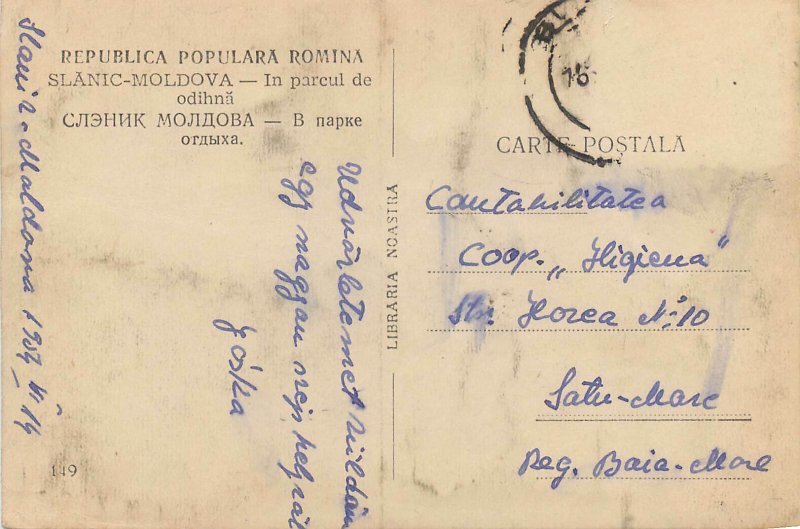 REPUBLICA POPULARĂ ROMÎNĂ
SLĂNIC-MOLDOVA — In parcul de
odihnă
СЛЭНИК МОЛДОВА — В парке
отдыха.
Slanic-Moldova
Udvözletemet küldöm
egy nagyon szép helyről
Jóska
149
LIBRĂRIA NOASTRĂ
CARTE POȘTALĂ
Contabilitatea
Coop. „Higiena"
Str. Horea No 10
Satu-Mare
Reg. Baia-Mare